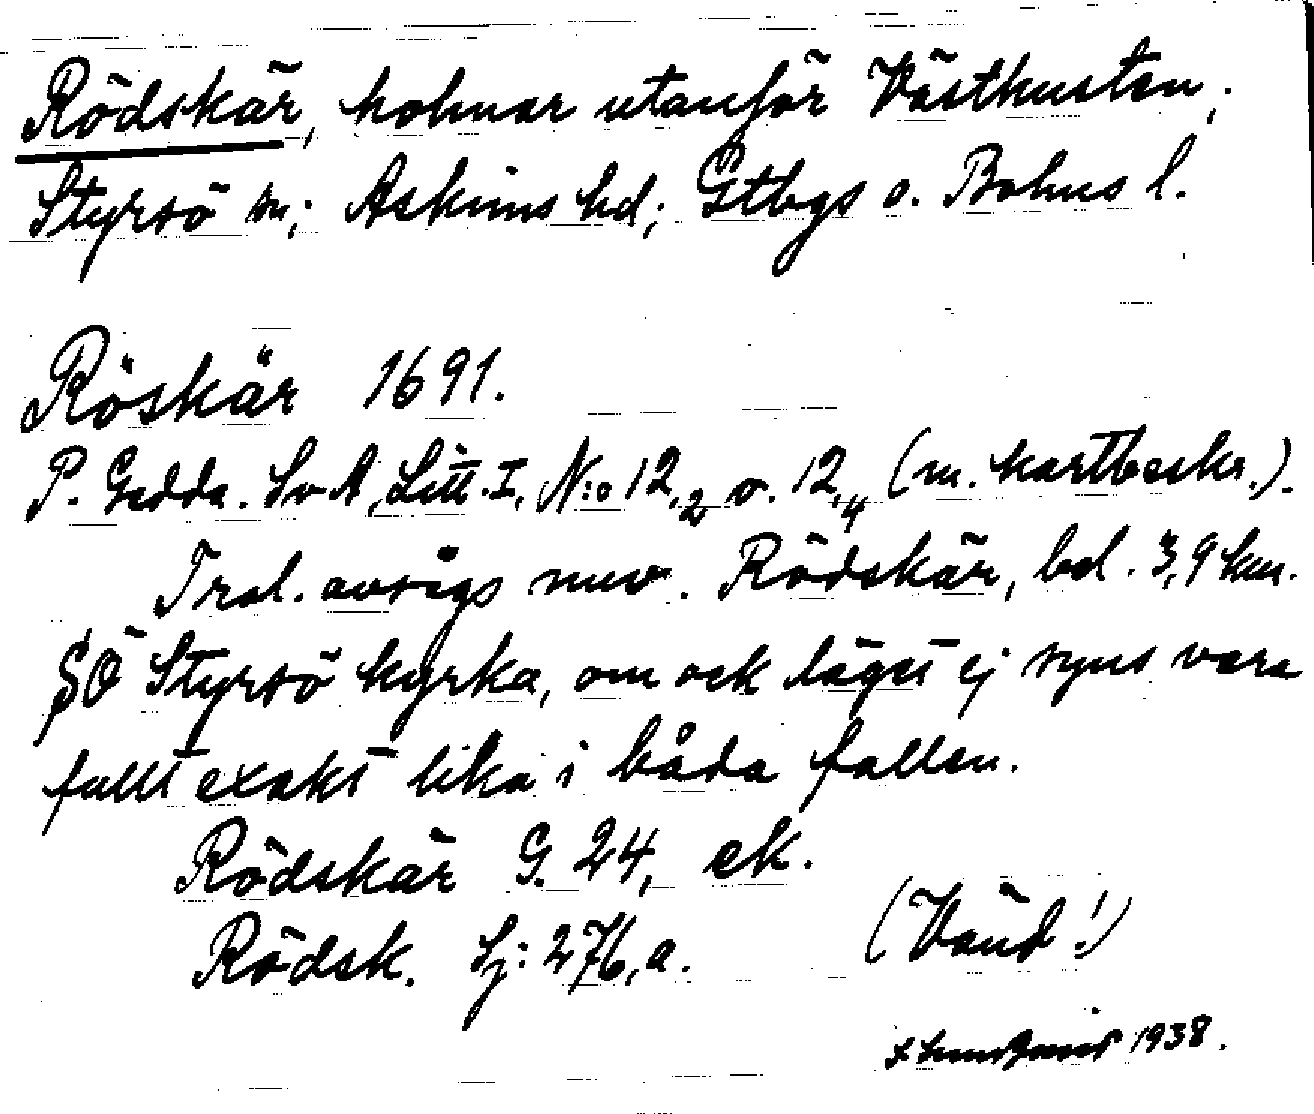 Rödskär, holmar utanför Västkusten;
Styrsö sn; Askims hd; Gtbgs o. Bohus l.
Röskär 1691.
P. Gedda. SvA, Litt. I, N:o 12,2 o. 12,4 (m. kartbeskr.).
Trol. avsigs nuv. Rödskär, bel. 3,9 km.
SÖ Styrsö kyrka, om ock läget ej synes vara
fullt exakt lika i båda fallen.
Rödskär G. 24, ek.
Rödsk. Sj: 276, a.
(Vänd!)
1938.